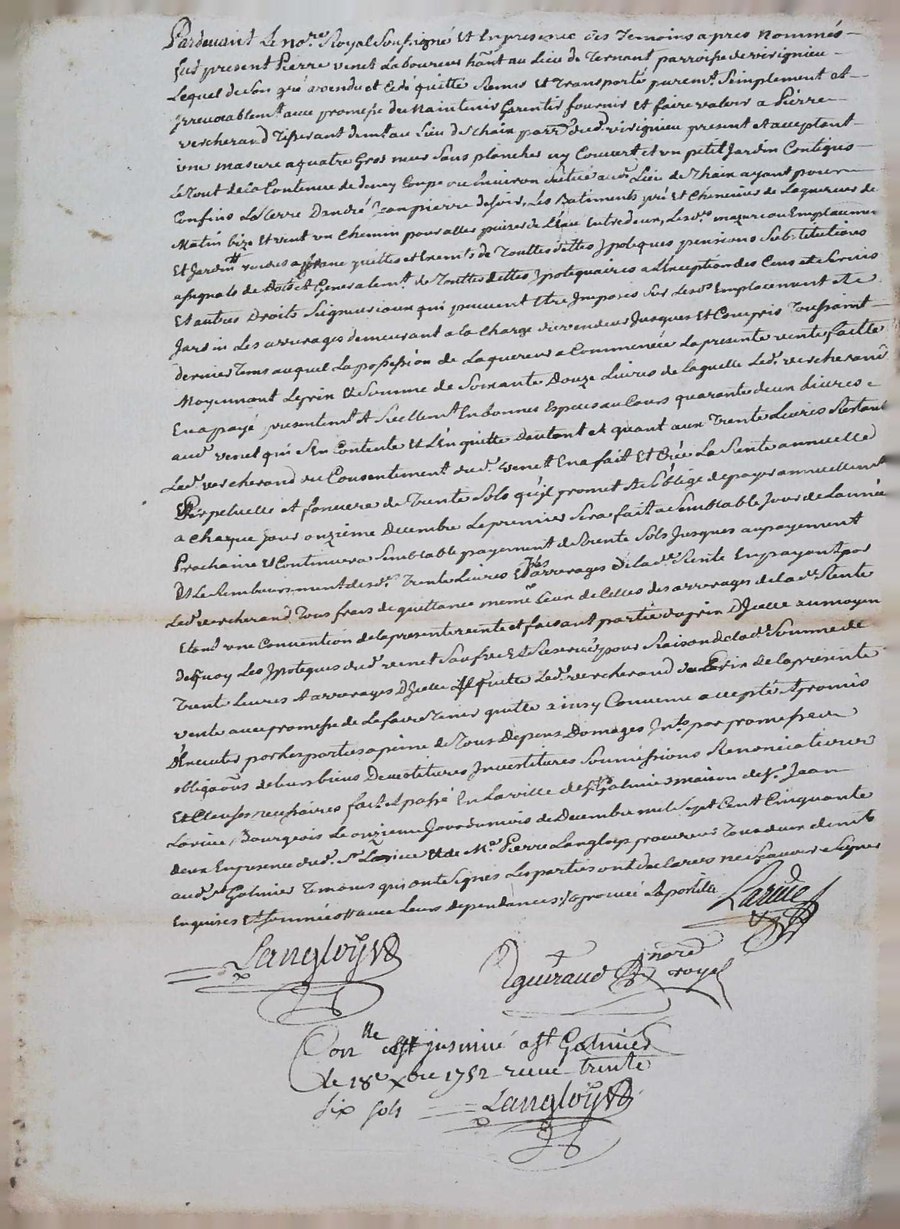 Pardevant Le no.re Royal Soussigné Et En presence des Temoins apres Nommés
fut present Pierre venet Laboureur hânt au Lieu de Ternant parroisse de virignieu
Lequel de Son gré a vendu et Cedé quitte Remis et Transporté purem.t Simplement et
jrrevocablem.t avec promesse de Maintenir Garentir fournir et faire valoir a Pierre
vercherand Tisserant dem.t au Lieu de Thain parr.e dud. virignieu present et acceptant
une masure a quatre Gros murs Sans plancher ny Couvert et un petit Jardin Contigus
Le Tout de la Contenue de Coupe ou Environ Situé aud. Lieu de Thain ayant pour
Confins La Terre D'andré Jean pierre de Soir, Les Batiments pré et Cheneviere de Laquereur de
Matin bize Et vent un Chemin pour aller puiser de L'eau Entredeux, Lesd. mazure ou Emplacem.t
Et Jardin vendus quittes et Exemts de Touttes dettes Jpoteques pensions Substitutions
et Generalem.t de Touttes dettes Jpotequaires a L'Exception des Cens et Servis
Et autres Droits Seigneuriaux qui peuvent Etre Imposés Sur Lesd. Emplacement et
Jardin Les arrerages demeurant a la Charge du vendeur Jusques Et Compris Toussaint
dernier Tems auquel La possession de Laquereur a Commencée La presente vente faitte
Moyennant Le prix Et Somme de Soixante Douze Livres de Laquelle Led. vercherand
En a payé presentem.t et Reellem.t En bonnes Especes au Cours quarante deux Livres
aud. venet qui S'en Contente Et L'En quitte D'autant et quant aux Trente Livres Restant
Led. vercherand du Consentement dud. venet En a fait Et Crée La Rente annuelle
Perpetuelle et fonciere de Trente Sols qu'jl promet et S'oblige de payer annuellem.t
a Chaque jour onzième Decembre Le premier Sera fait a Semblable Jour de Lannée
Prochaine Et Continuera Semblable payement de Trente Sols Jusques au payement
Et Le Rembourcement desd. Trente Livres Et arrerages de lad. Rente En payant par
Led. vercherand Tous frais de quittance meme Ceux de Celles des arrerages de la d. Rente
Etant une Convention de la presente vente et faisant partie du prix D'jcelle au moyen
dequoy Les Jpoteques dud. venet Sauf et Reservé pour Raison de lad. Somme de
Trente Livres et arrerages D'jcelle Jl quitte Led. vercherand du prix de la presente
vente avec promesse de Le faire Tenir quitte ainsy Convenu accepté et promis
D'executer par Les parties a peine de Tous Depens Domages Jnt.s par promesse
obliga.ons de Leurs biens Devestitures Jnvestitures Soumissions Renonciations
Et Clauses necessaires fait et passé En La ville de St Galmier maison de S.r Jean
Larue Bourgeois Le onzieme Jour du mois de Decembre mil Sept Cent Cinquante
deux En presence dud. S.r Larue et de M.e Pierre Langlois procureur Tous deux dem.t
aud. St Galmier Temoins qui ont Signés Les parties ont declarer ne Sçavoir Signer
Enquises Et Sommées avec Leurs dependances aprouvé L'apostille
Larue
Langloys
Eguiraud no.re royal
Con.lle et jnsinué a St Galmier
le 18e Xbre 1752 reçu trente
six sols
Langloys